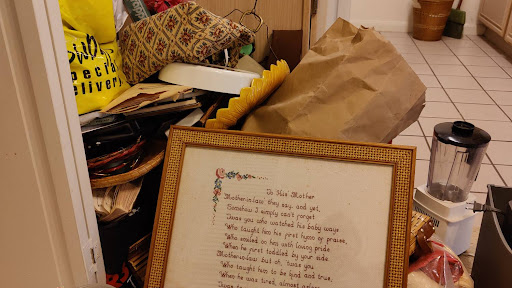 special
delivery
To His Mother
"Mother-in-law" they say, and yet,
Somehow I simply can't forget
'Twas you who watched his baby ways
Who taught him his first hymn of praise,
Who smiled on him with loving pride
When he first toddled by your side.
"Mother-in-law" but oh, 'twas you
Who taught him to be kind and true;
When he was tired, almost asleep,